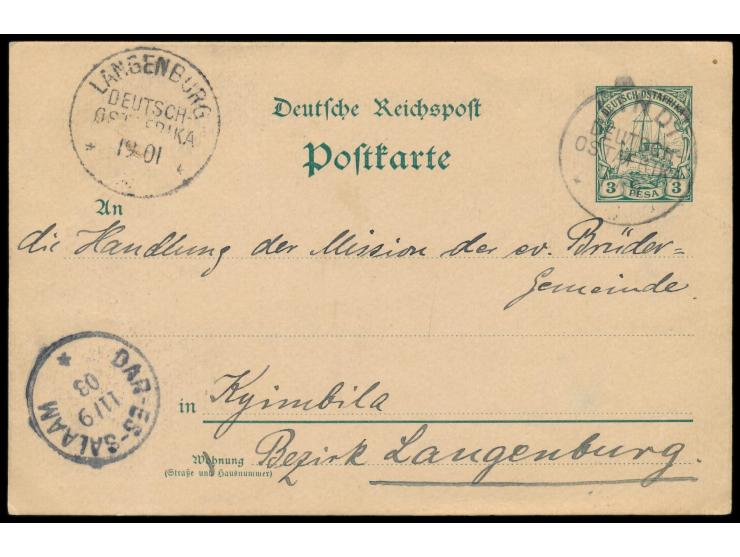 LANGENBURG
DEUTSCH-
OSTAFRIKA
19 01
Deutsche Reichspost
Postkarte
DEUTSCH-OSTAFRIKA
3 PESA 3
DEUTSCH-
OSTAFRIKA
An
die Handlung der Mission der ev. Brüder=
Gemeinde.
DAR-ES-SALAAM
11/9
03
in Kyimbila
Wohnung Bezirk Langenburg.
(Straße und Hausnummer)